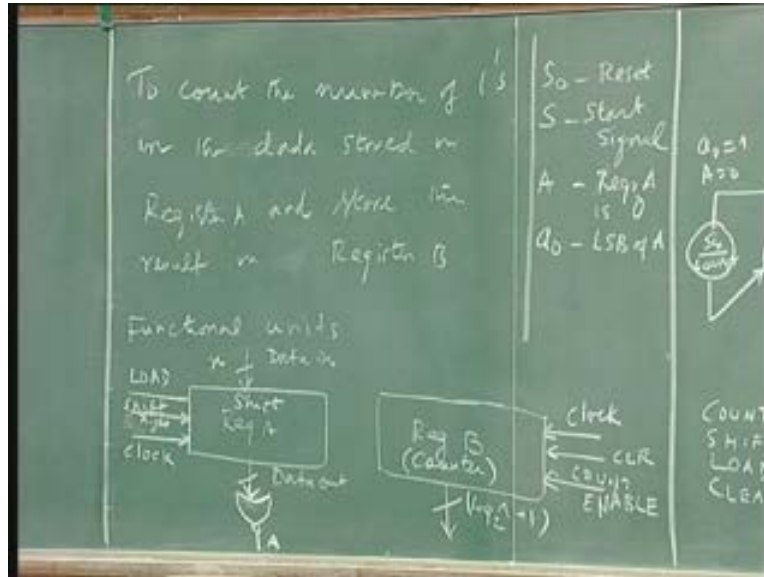 To count the number of 1's
in the data stored in
Register A and store the
result in Register B
Functional units
n Data in
LOAD
Shift
Right
Clock
Shift
Reg A
Data out
A
Reg B
(Counter)
Clock
CLR
COUNT
ENABLE
S0 - Reset
S - Start
Signal
A - Reg. A
is 0
a0 - LSB of A
a0=1
A=0
S0
COUNT
SHIF
LOAD
CLEA